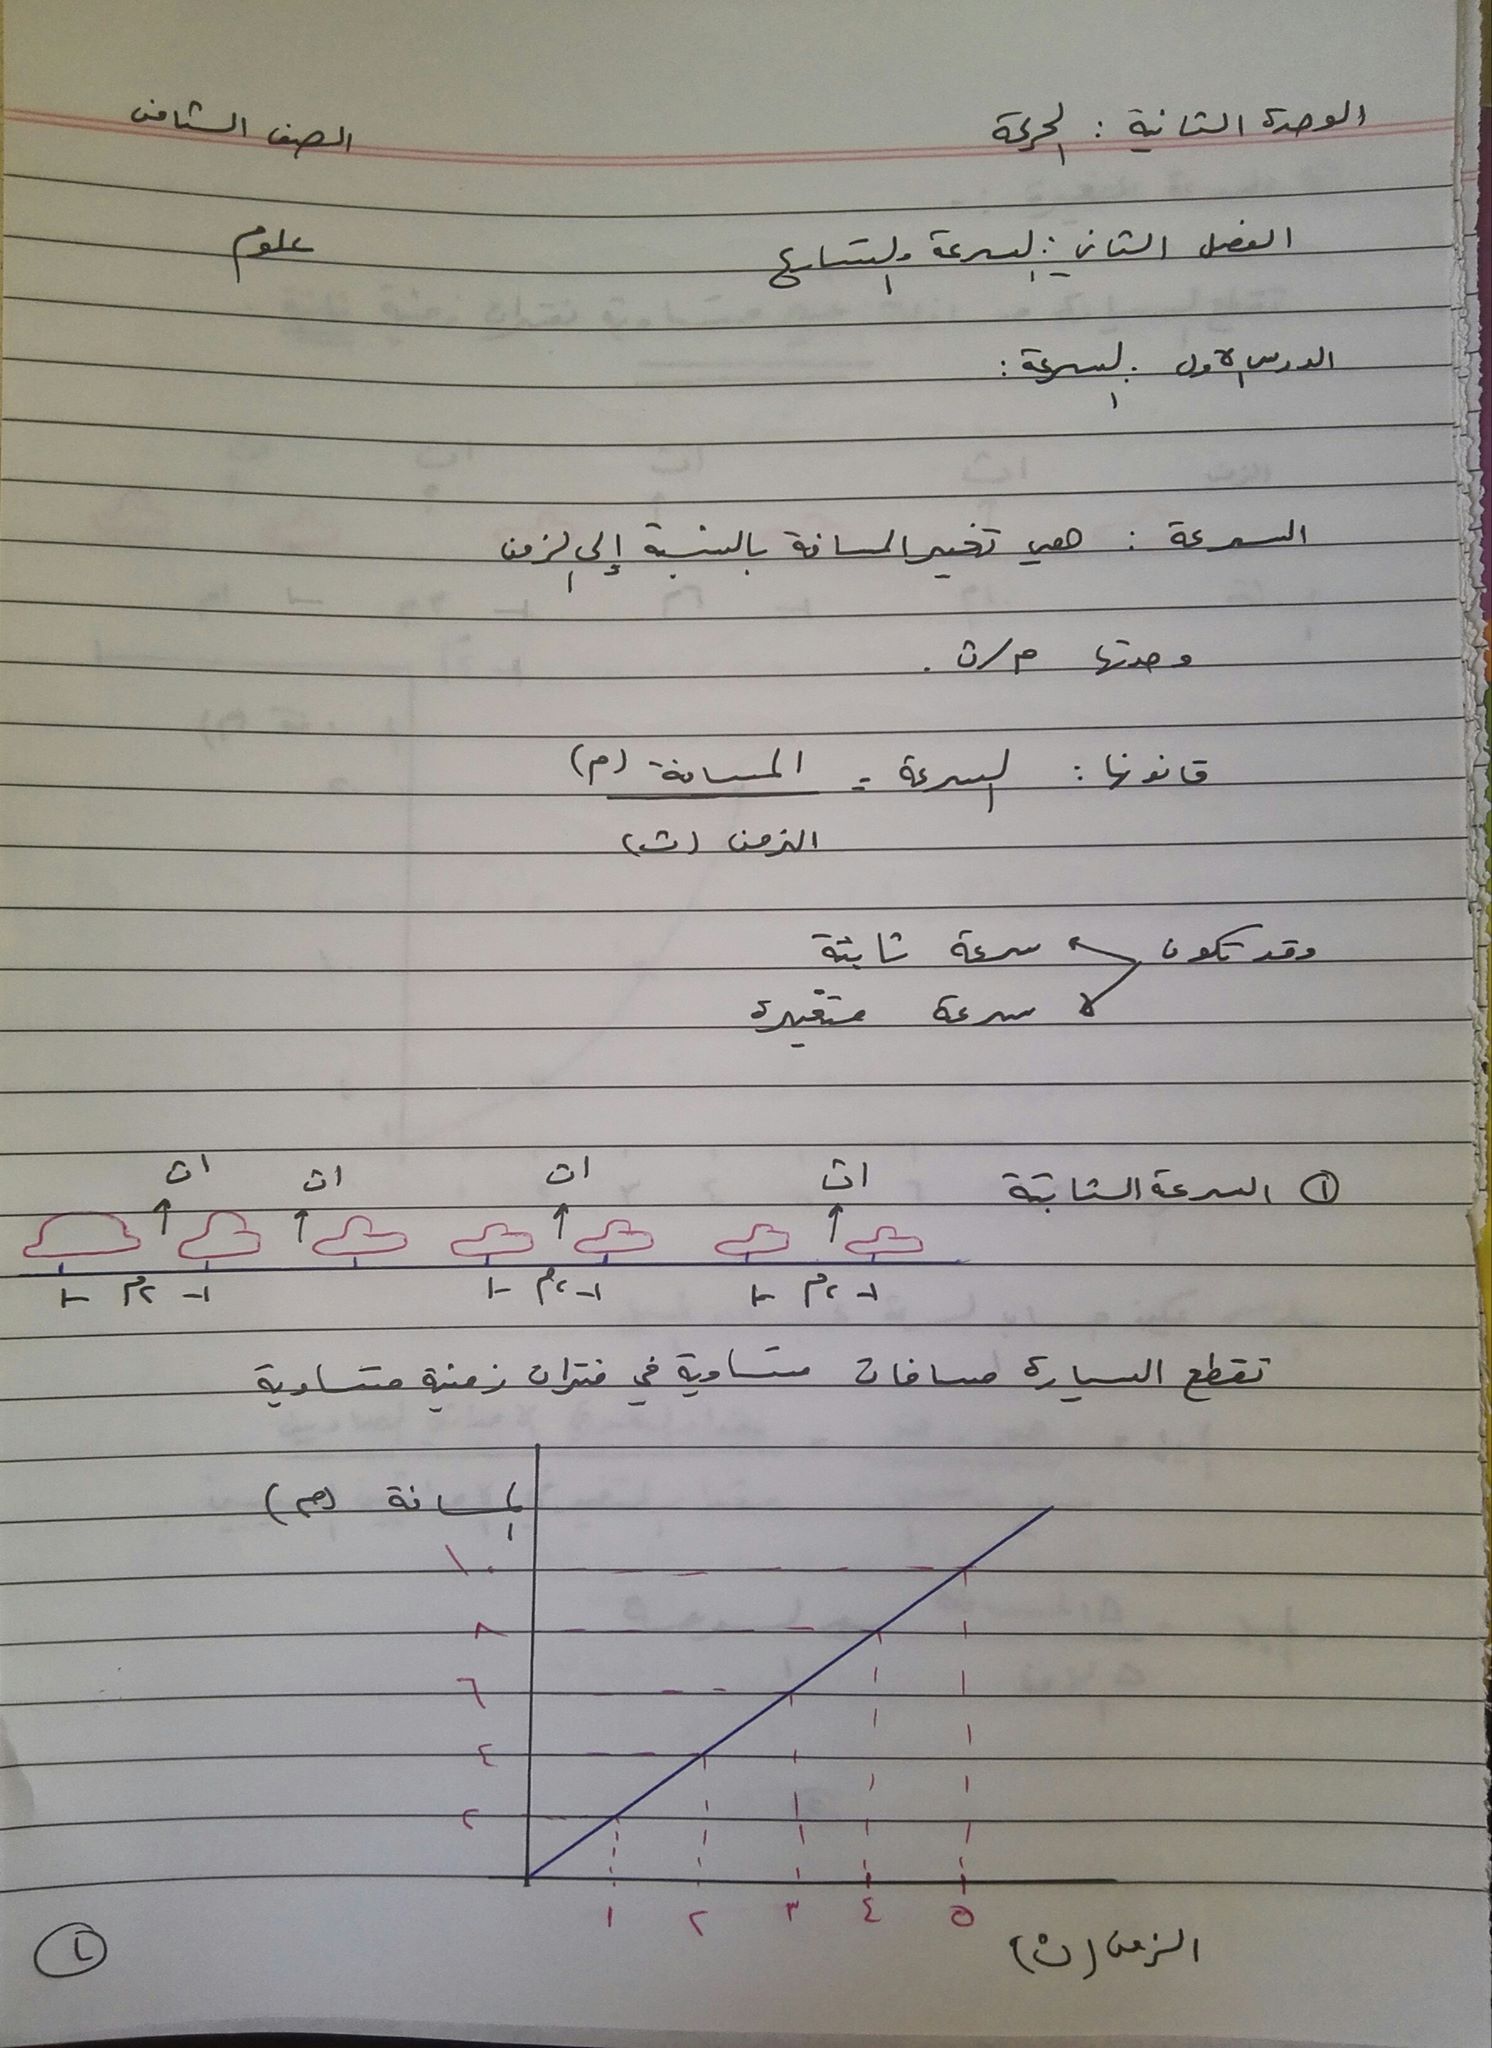 الوحدة الثانية : الحركة
الصف الثامن
الفصل الثاني : السرعة والتسارع
علوم
الدرس الاول : السرعة :
السرعة : هي تغير المسافة بالنسبة إلى الزمن
وحدتها م/ث .
قانونها : السرعة = المسافة (م)
الزمن (ث)
وقد تكون سرعة ثابتة
سرعة متغيرة
١ السرعة الثابتة
١ث ١ث ١ث ١ث
٢م ٢م ٢م
تقطع السيارة مسافات متساوية في فترات زمنية متساوية
المسافة (م)
١٠
٨
٦
٤
٢
١ ٢ ٣ ٤ ٥
الزمن (ث)